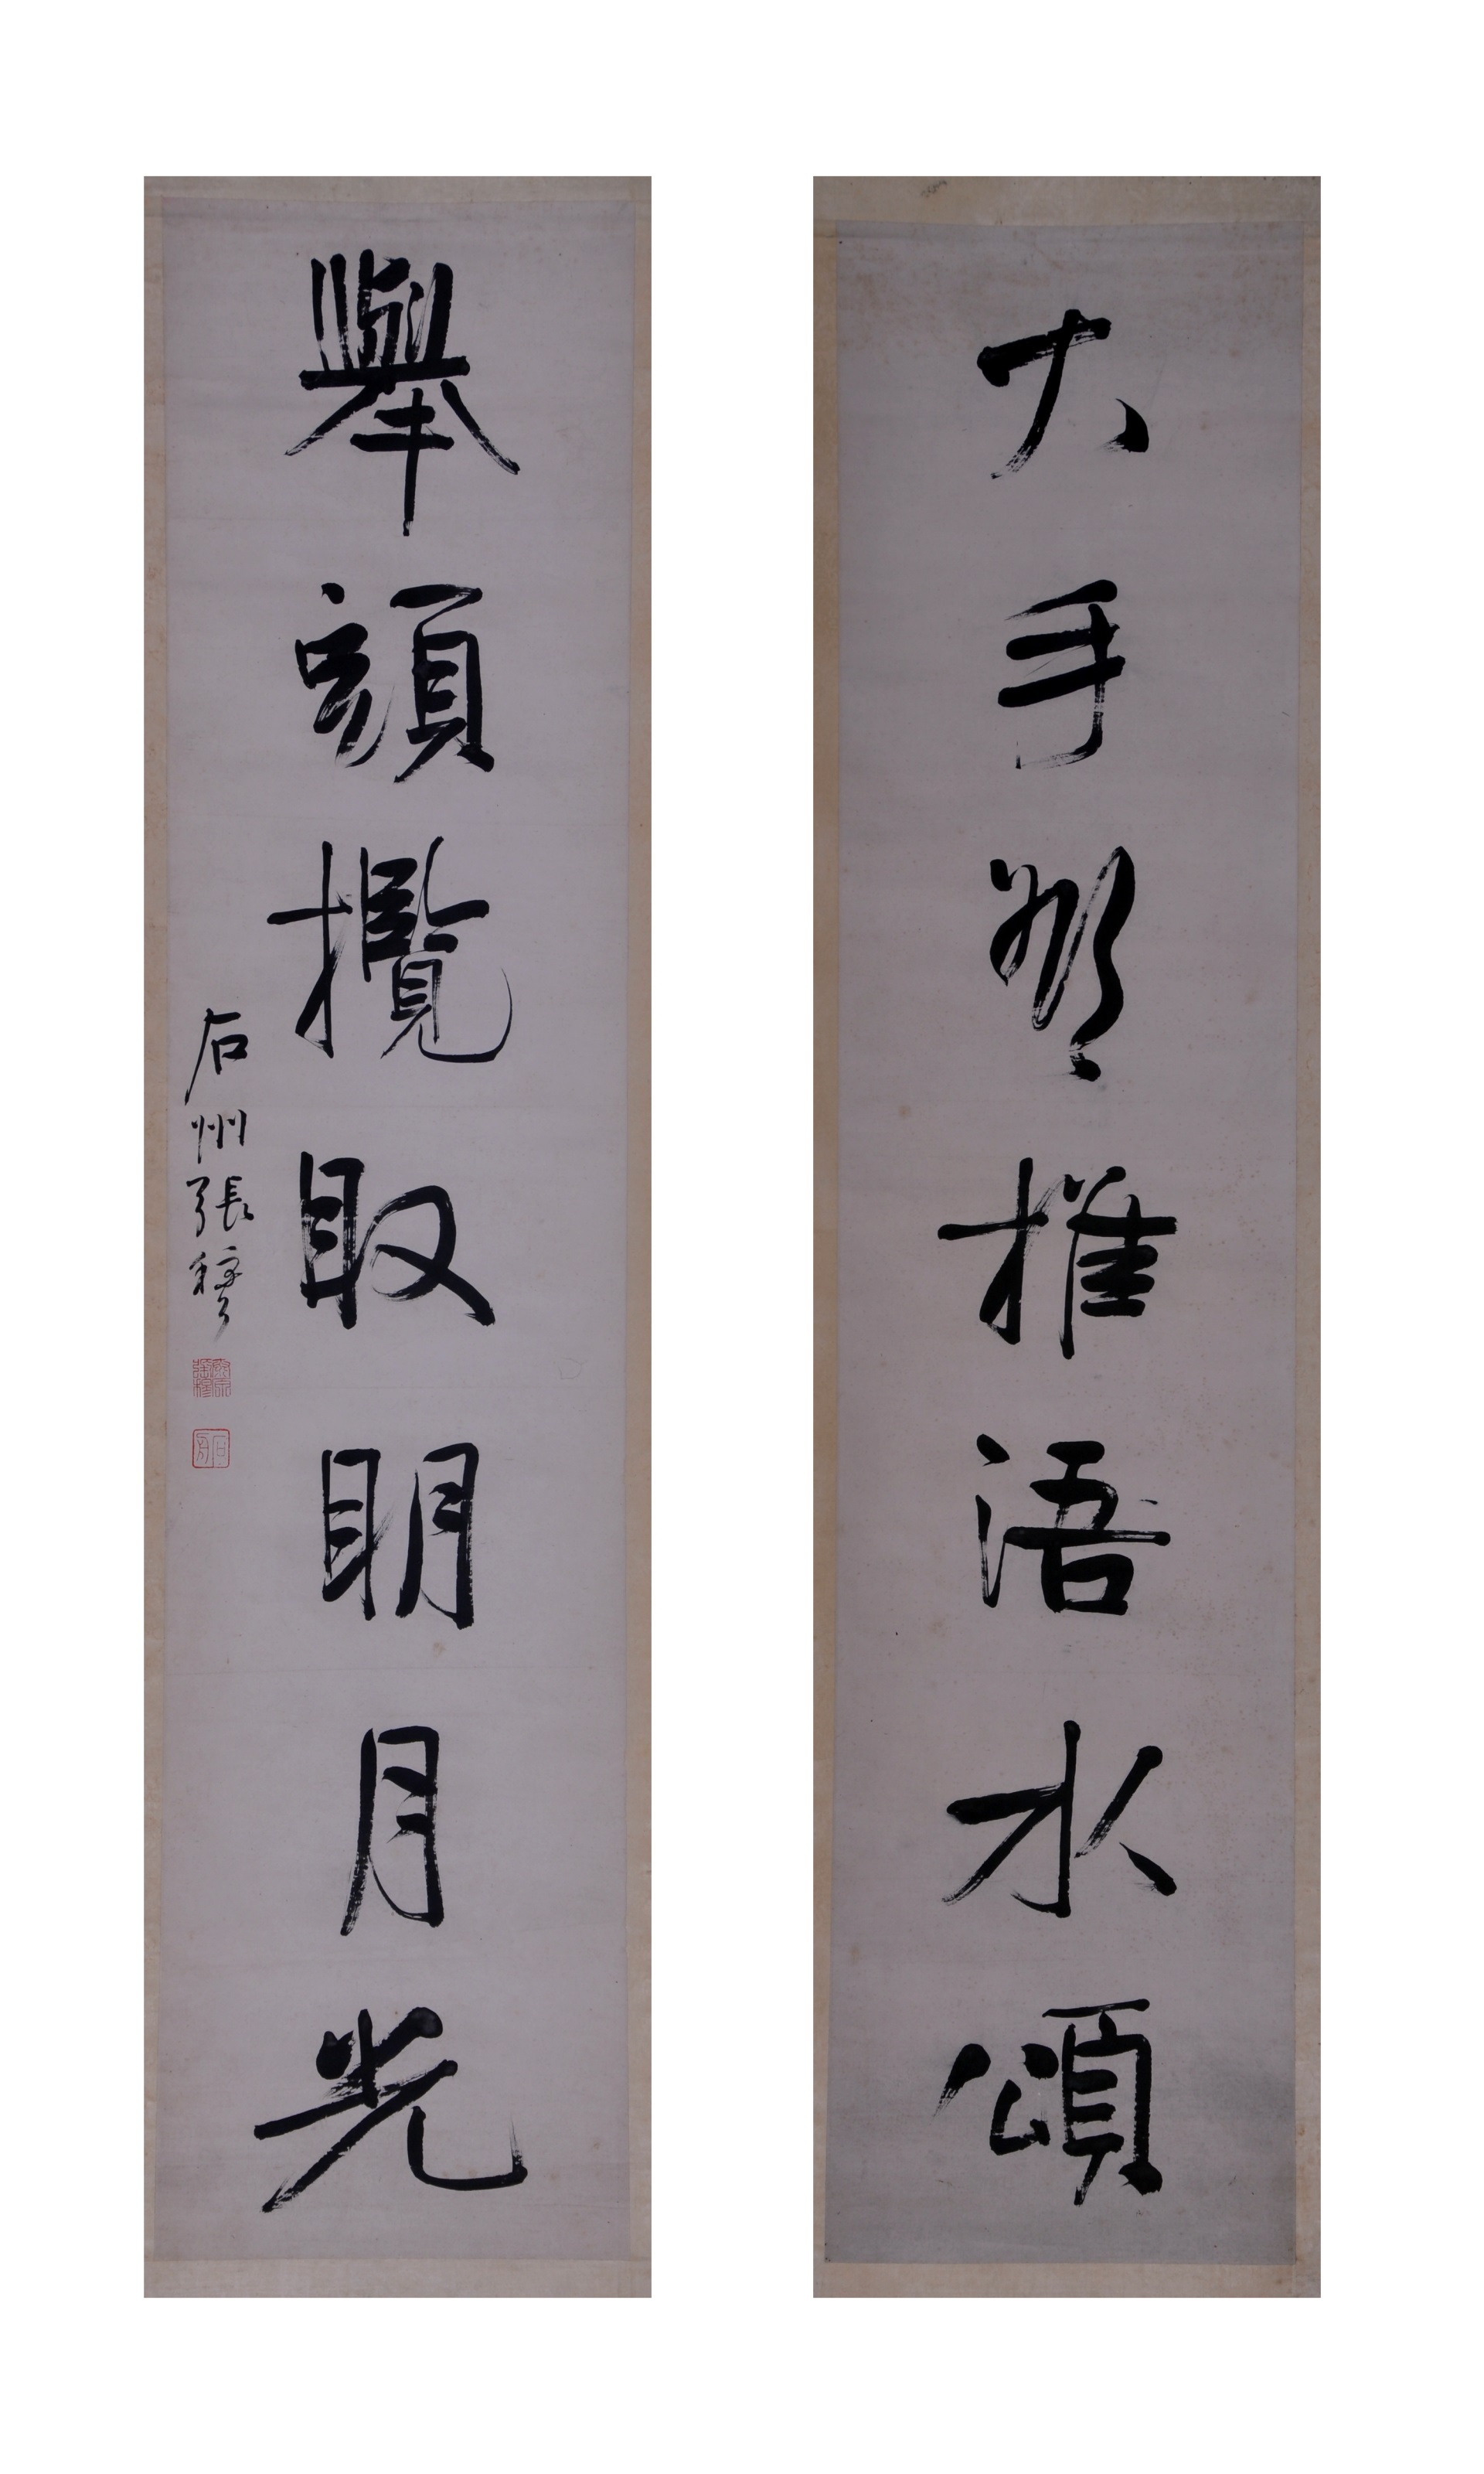 大手推浯水頌
舉頭攬取明月光
石州張穆
石舟